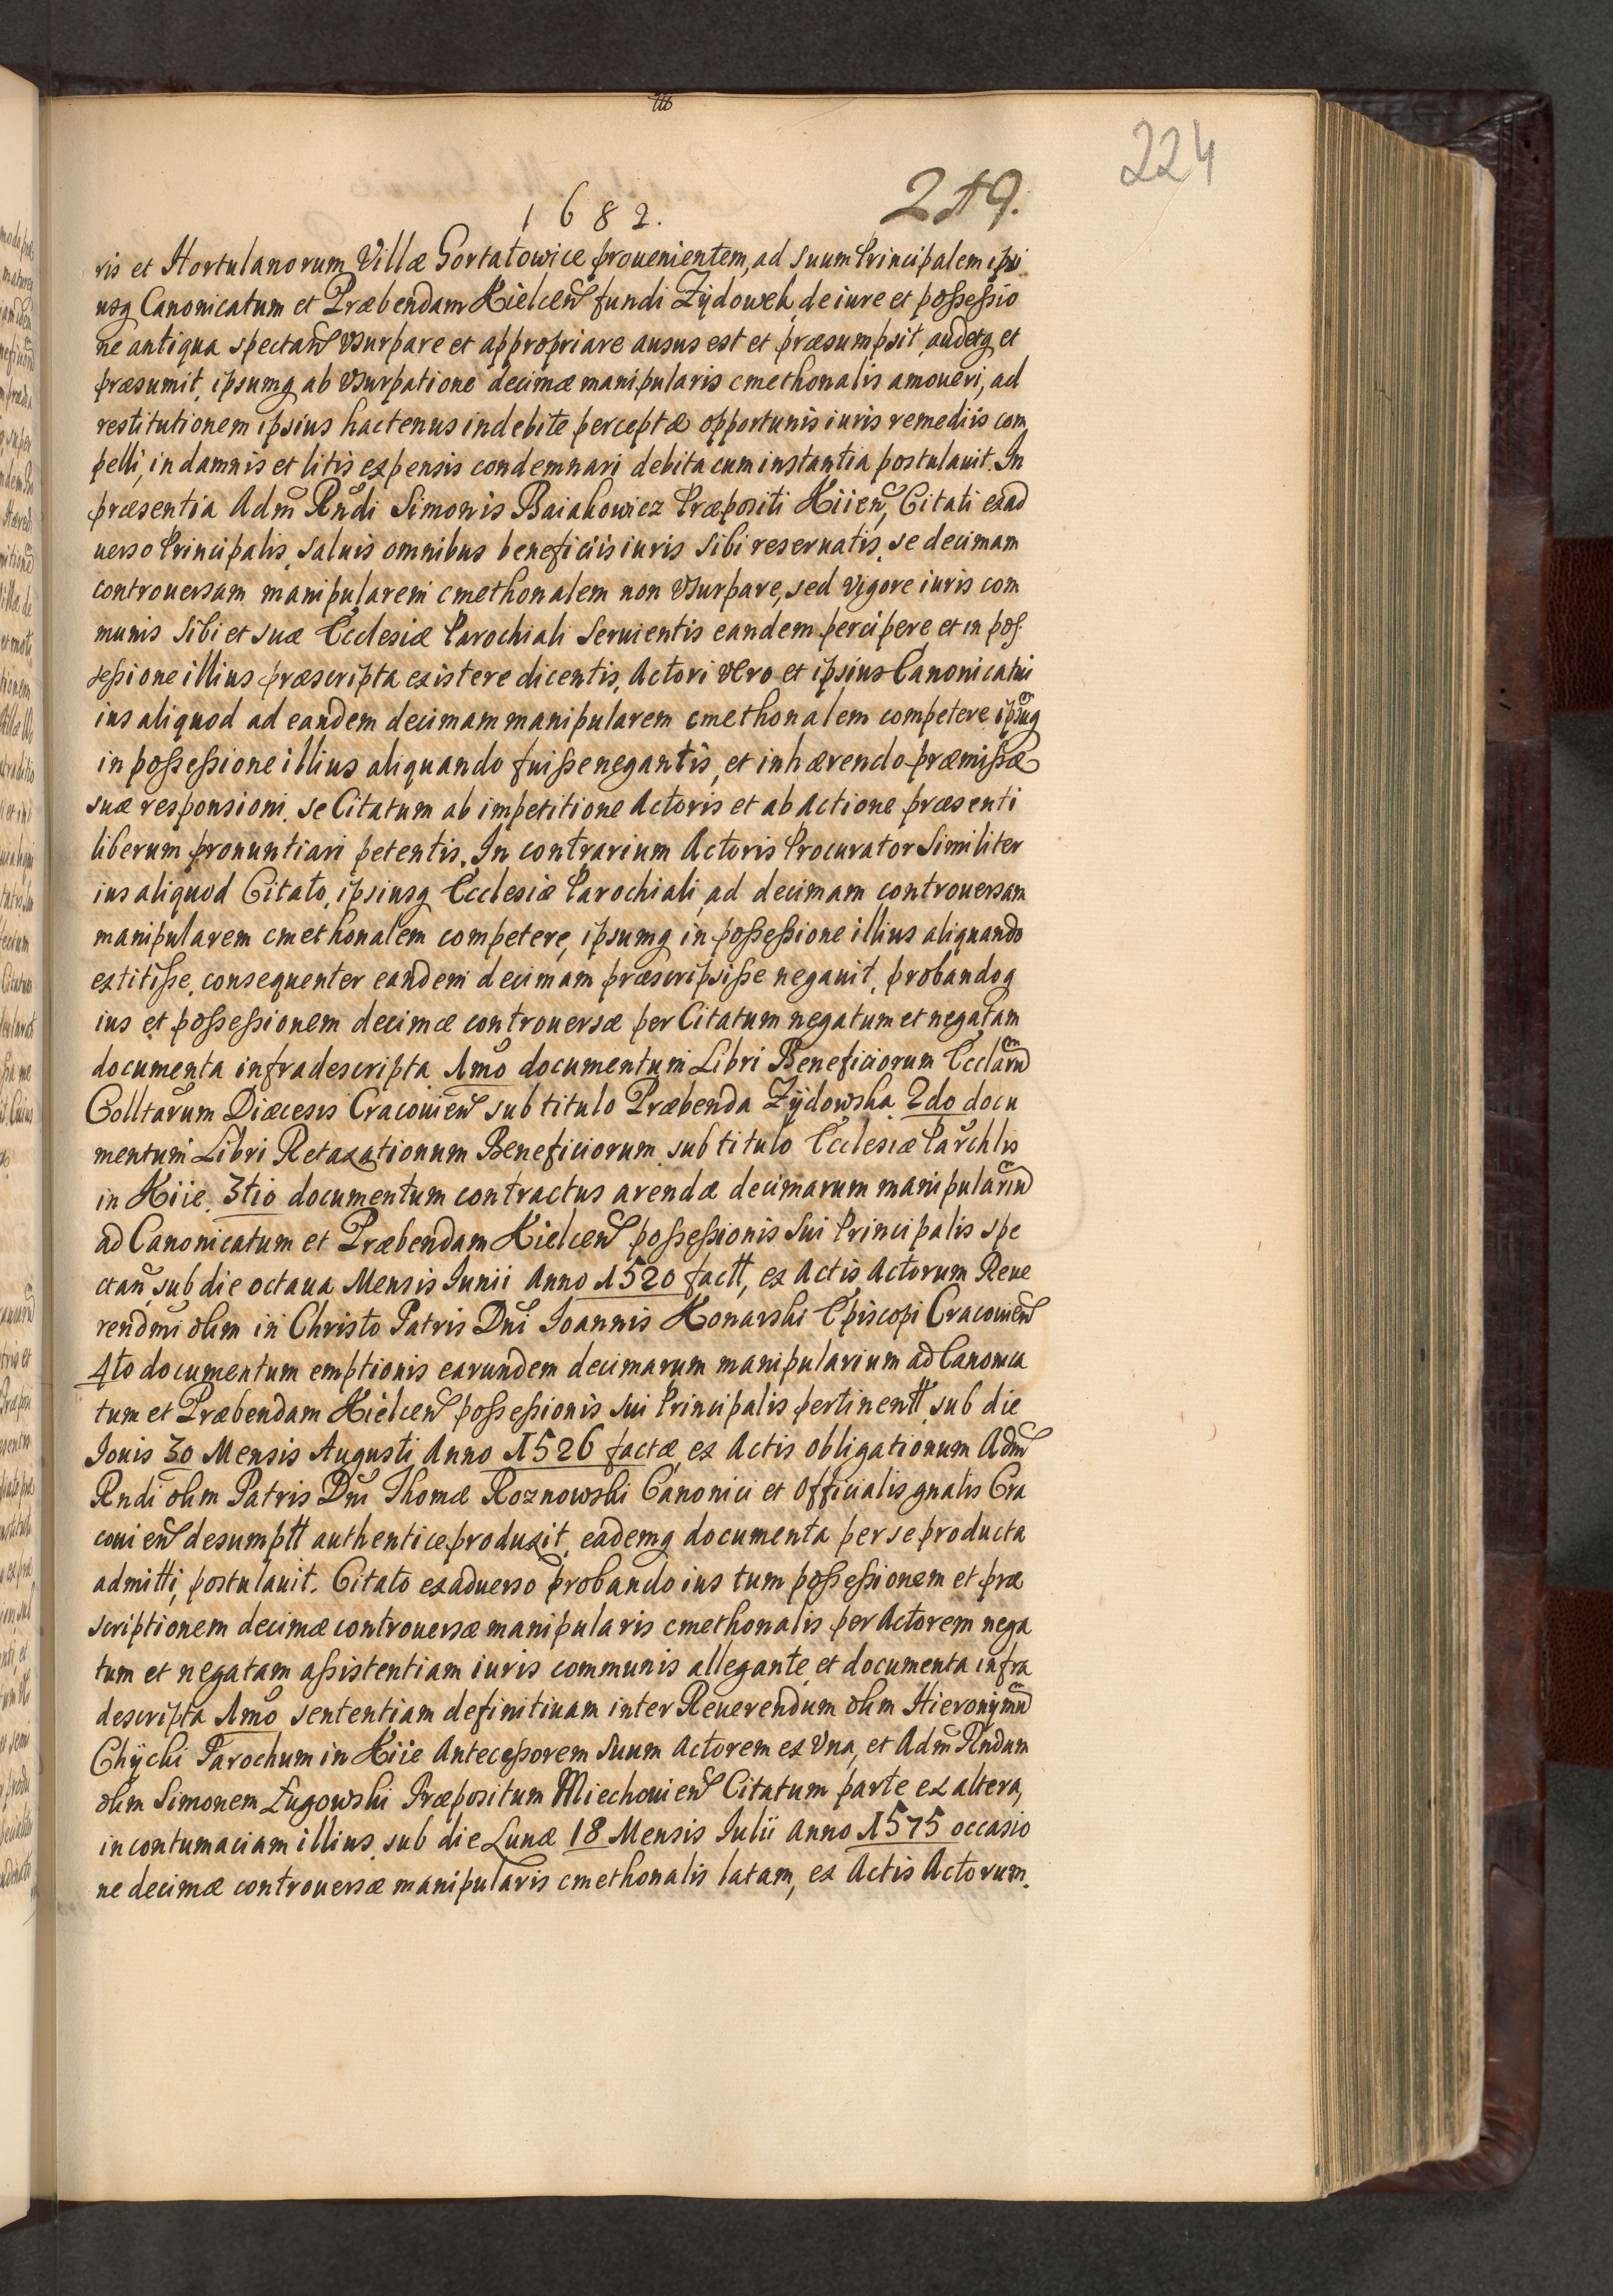 224
219.
1682.
ris et Hortulanorum Villæ Gortatowice prouenientem, ad suum Principalem ipsi
usq Canonicatum et Præbendam Kielcen fundi Zÿdowek, de iure et possessio
ne antiqua spectan vsurpare et appropriare ausus est et præsumpsit, audetq et
præsumit, ipsumq ab vsurpatione decimæ manipularis cmethonalis amoueri, ad
restitutionem ipsius hactenus indebite perceptæ opportunis iuris remediis com
pelli, in damnis et litis expensis condemnari debita cum instantia postulauit. In
præsentia Adm Rndi Simonis Baiakowicz Præpositi Kiien, Citati exad
uerso Principalis, saluis omnibus beneficiis iuris sibi reseruatis, se decimam
controuersam manipularem cmethonalem non vsurpare, sed vigore iuris com
munis sibi et suæ Ecclesiæ Parochiali seruientis eandem percipere et in pos
sessione illius præscripta existere dicentis, Actori vero et ipsius Canonicatui
ius aliquod ad eandem decimam manipularem cmethonalem competere ipsuq
in possessione illius aliquando fuisse negantis, et inhærendo præmissæ
suæ responsioni, se Citatum ab impetitione Actoris et ab actione præsenti
liberum pronuntiari petentis. In contrarium Actoris Procurator similiter
ius aliquod Citato, ipsiusq Ecclesiæ Parochiali, ad decimam controuersam
manipularem cmethonalem competere, ipsumq in possessione illius aliquando
extitisse, consequenter eandem decimam præscripsisse negauit, probandoq
ius et possessionem decimæ controuersæ per Citatum negatum et negatam
documenta infradescripta 1mo documentum Libri Beneficiorum Ecclaru
Colltarum Diæcesis Cracouien sub titulo Præbenda Zÿdowska 2do docu
mentum Libri Retaxationum Beneficiorum sub titulo Ecclesiæ Parchlis
in Kiie. 3tio documentum contractus arendæ decimarum manipulariu
ad Canonicatum et Præbendam Kielcen possessionis sui Principalis spe
ctan, sub die octaua Mensis Iunii Anno 1520 factt, ex Actis Actorum Reue
rendmi olim in Christo Patris Dni Ioannis Konarski Episcopi Cracouien
4to documentum emptionis earundem decimarum manipularium ad Canonica
tum et Præbendam Kielcen possessionis sui Principalis pertinentt, sub die
Iouis 30 Mensis Augusti Anno 1526 factæ, ex Actis obligationum Adm
Rndi olim Patris Dni Thomæ Roznowski Canonici et Officialis gnalis Cra
couien desumptt authentice produxit, eademq documenta per se producta
admitti, postulauit. Citato exaduerso probando ius tum possessionem et præ
scriptionem decimæ controuersæ manipularis cmethonalis per Actorem nega
tum et negatam assistentiam iuris communis allegante et documenta infra
descripta 1mo sententiam definitiuam inter Reuerendum olim Hieronÿmu
Chÿcki Parochum in Kiie Antecessorem suum Actorem ex vna, et Adm Rndum
olim Simonem Ługowski Præpositum Miechouien Citatum parte ex altera,
in contumaciam illius, sub die Lunæ 18 Mensis Iulii Anno 1575 occasio
ne decimæ controuersæ manipularis cmethonalis latam, ex Actis Actorum